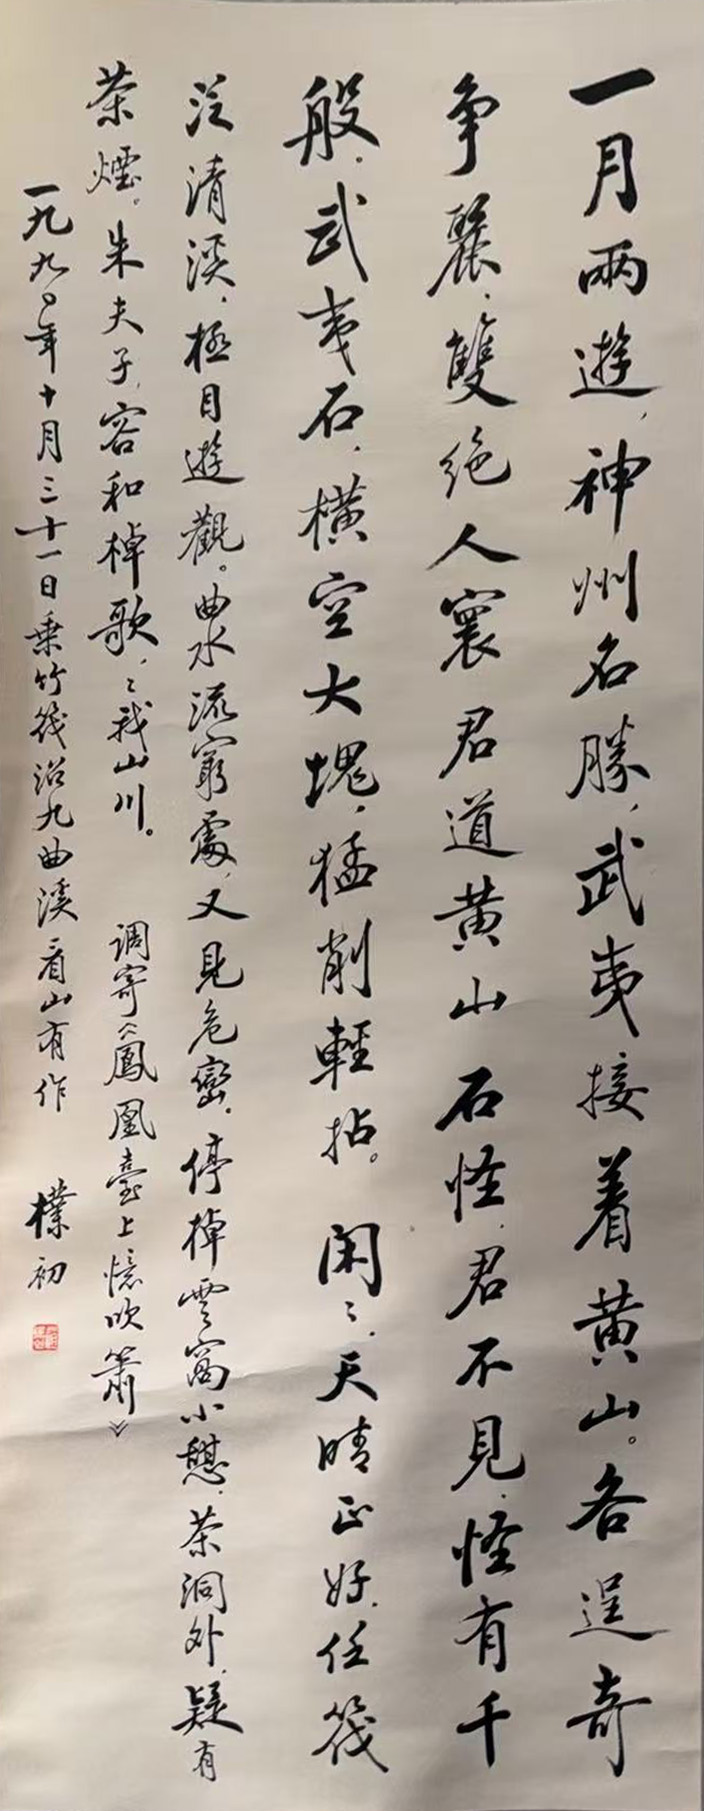 一月兩遊，神州名勝，武夷接着黄山。各逞奇
争麗，雙绝人寰君道黄山石怪，君不見，怪有千
般，武夷石，横空大塊，猛削輕拈。閑〻，天晴正好，任筏
泛清溪，極目遊觀。曲水流窮處，又見危巒，停棹雲窩小憩，茶洞外，疑有
茶煙。朱夫子，容和棹歌，〻我山川。　調寄《鳳凰臺上憶吹簫》
一九九〇年十月三十一日乘竹筏沿九曲溪看山有作　樸初